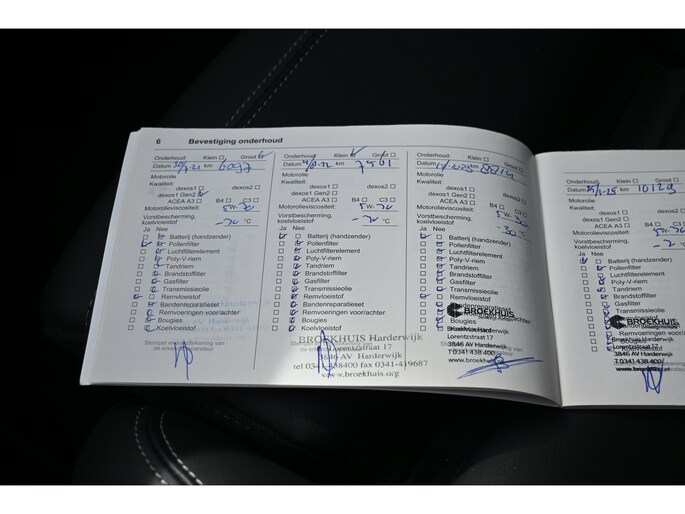 6 Bevestiging onderhoud
Onderhoud: Klein Groot
Datum km
Motorolie
Kwaliteit:
dexos1
dexos1 Gen2
ACEA A3 B4 C3
Motorolieviscositeit: 5W-30
Vorstbescherming,
koelvloeistof °C
Ja Nee
Batterij (handzender)
Pollenfilter
Luchtfilterelement
Poly-V-riem
Tandriem
Brandstoffilter
Gasfilter
Transmissieolie
Remvloeistof
Bandenreparatieset
Remvoeringen voor/achter
Bougies
Koelvloeistof
Stempel en ondertekening van
de erkende reparateur
Onderhoud: Klein Groot
Datum km 7501
Kwaliteit:
dexos1
dexos1 Gen2
ACEA A3 B4 C3
Motorolieviscositeit: 5W-
Vorstbescherming,
koelvloeistof °C
Ja Nee
Batterij (handzender)
Pollenfilter
Luchtfilterelement
Poly-V-riem
Tandriem
Brandstoffilter
Gasfilter
Transmissieolie
Remvloeistof
Bandenreparatieset
Remvoeringen voor/achter
Bougies
Koelvloeistof
BROEKHUIS Harderwijk
Lorentzstraat 17
3846 AV Harderwijk
tel 0341-438400 fax 0341-419687
www.broekhuis.org
Onderhoud: Klein Groot
Datum km
Motorolie
Kwaliteit:
dexos1
dexos1 Gen2
ACEA A3 B4 C3
Motorolieviscositeit: 5W-
Vorstbescherming,
koelvloeistof -30 °C
Ja Nee
Batterij (handzender)
Pollenfilter
Luchtfilterelement
Poly-V-riem
Tandriem
Brandstoffilter
Gasfilter
Transmissieolie
Remvloeistof
BROEKHUIS
Lorentzstraat 17
3846 AV Harderwijk
T 0341 438 400
www.broekhuis
Onderhoud: Klein Groot
Datum km 10129
Motorolie
Kwaliteit:
dexos1
dexos1 Gen2
ACEA A3 B4
Motorolieviscositeit: 5W-
Vorstbescherming,
koelvloeistof
Ja Nee
Batterij (handzender)
Pollenfilter
Luchtfilterelement
Poly-V-riem
Tandriem
Brandstoffilter
Gasfilter
Transmissieolie
BROEKHUIS
Remvoeringen voor/
Broekhuis Harderwijk
Lorentzstraat 17
3846 AV Harderwijk
T 0341 438 400